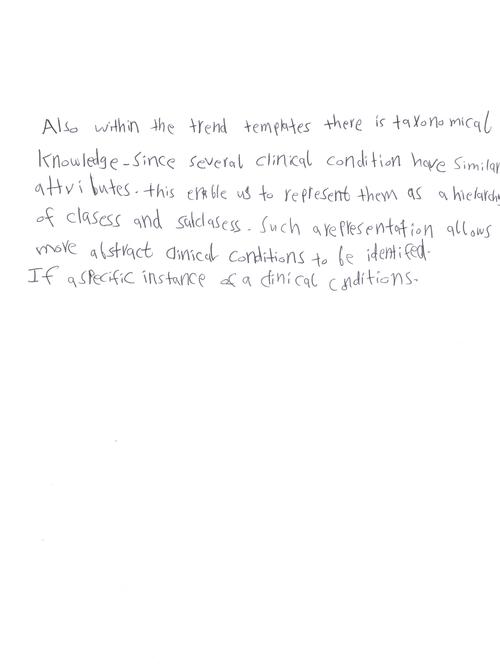 Also within the trend templates there is taxonomical
knowledge-Since several clinical condition have similar
attributes. this enable us to represent them as a hierarchy
of clasess and subclasess. Such arepresentation allows
more abstract clinical conditions to be identifed.
If aspecific instance of a clinical conditions.